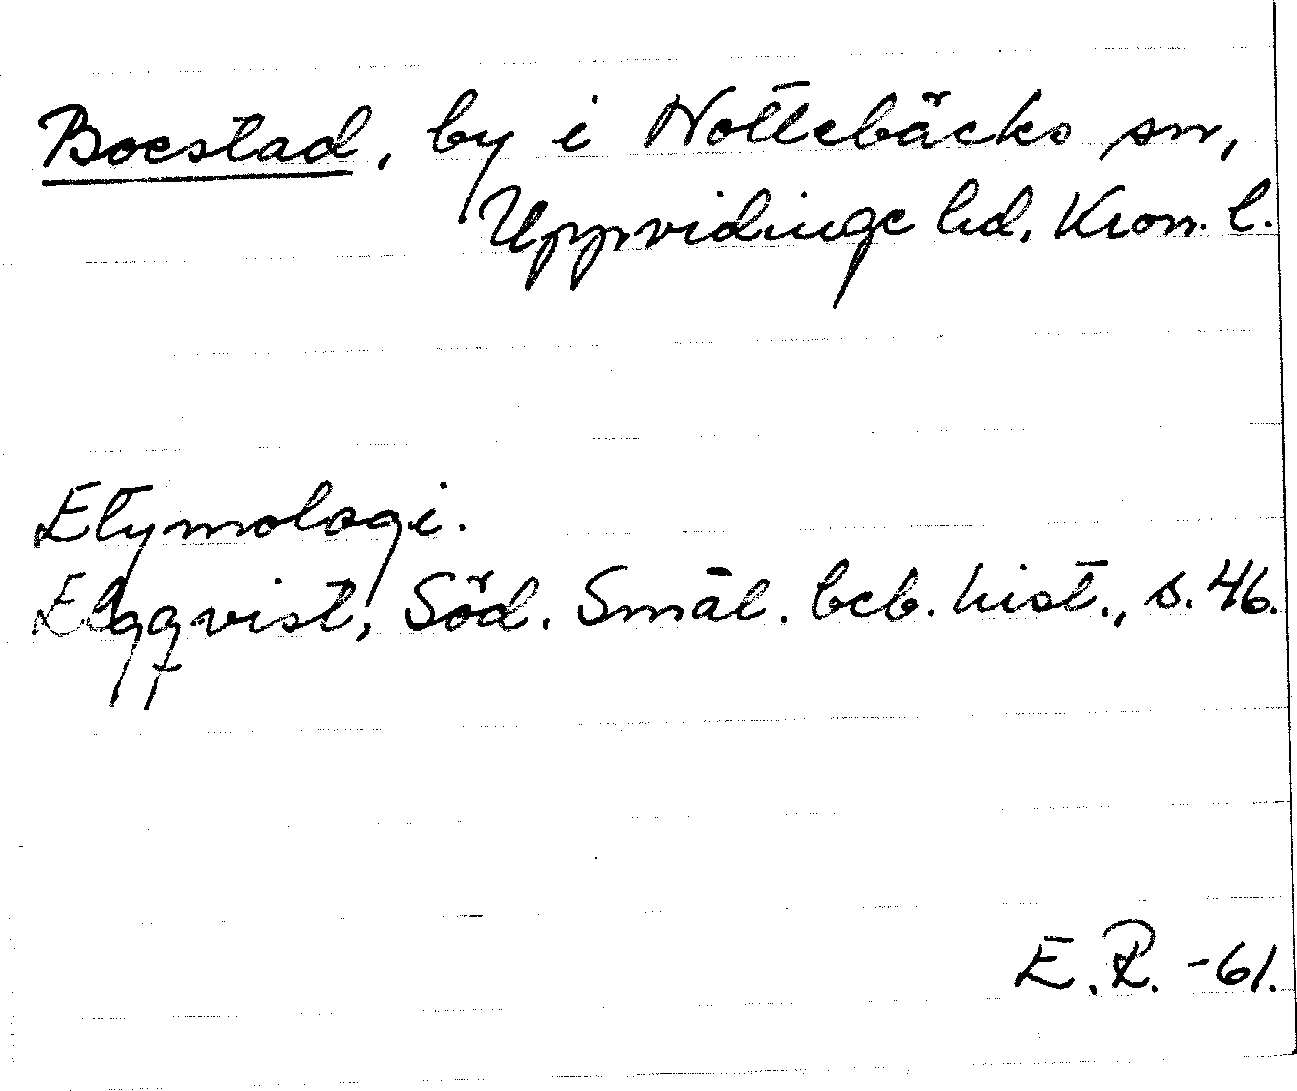 Boestad, by i Nottebäcks sn,
Uppvidinge hd, Kron. l.
Etymologi.
Elgqvist, Söd. Smål. beb. hist., s. 46.
E. R. -61.